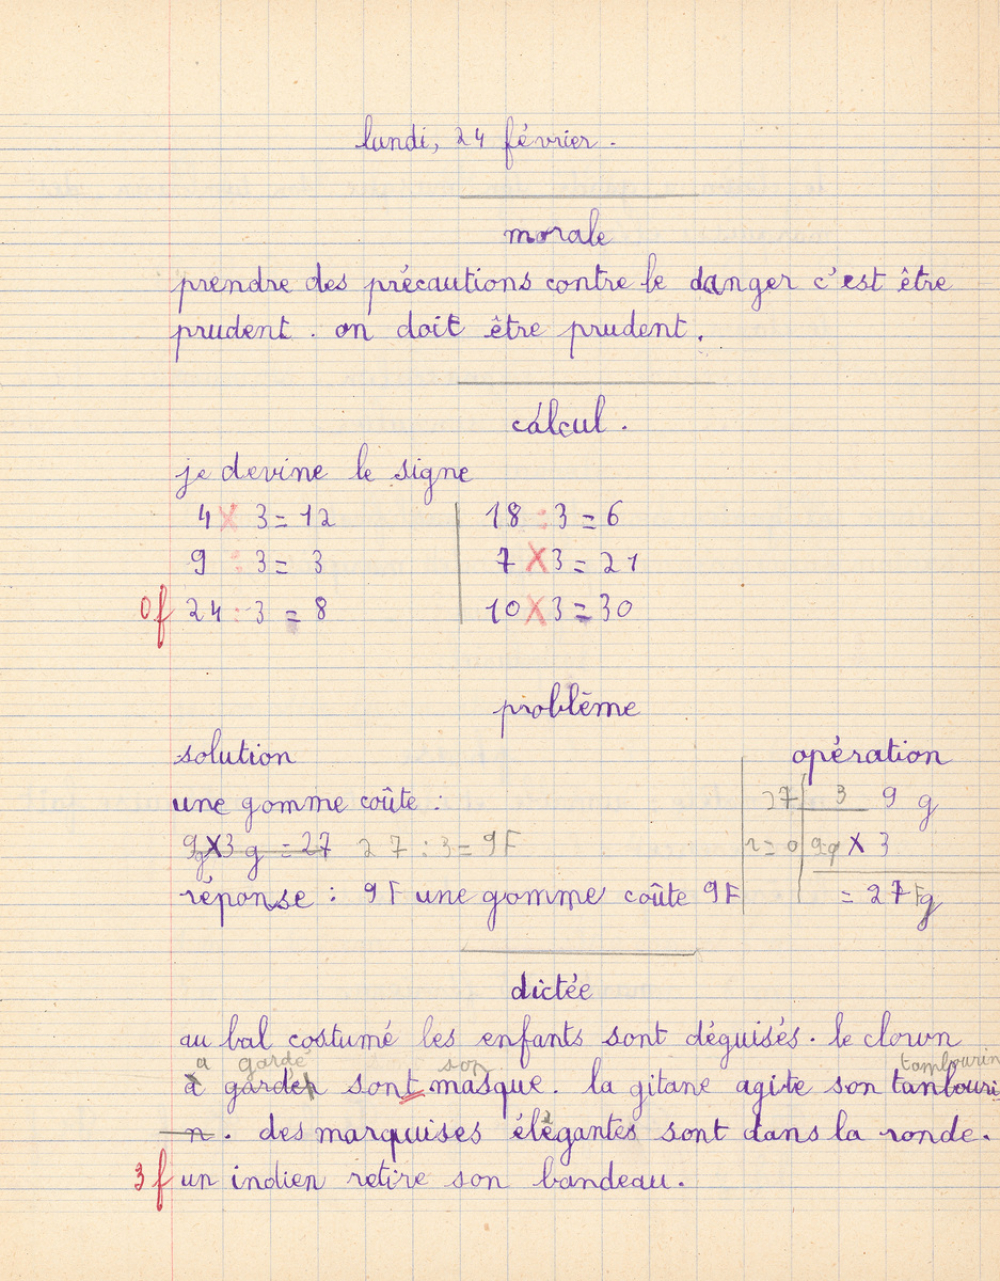 lundi, 24 février.
morale
prendre des précautions contre le danger c'est être
prudent. on doit être prudent.
cálcul.
je devine le signe
4 X 3 = 12
9 : 3 = 3
0f 24 : 3 = 8
18 : 3 = 6
7 X 3 = 21
10 X 3 = 30
problème
solution
une gomme coûte :
9g X 3 g = 27 27 : 3 = 9F
réponse : 9F une gomme coûte 9F
opération
27 3 9 g
r = 0 9g X 3
= 27 Fg
dictée
au bal costumé les enfants sont déguisés. le clown
a gardé son tambourin
à garder sont masque. la gitane agite son tanbouri
n. des marquises élégantes sont dans la ronde.
3f un indien retire son bandeau.